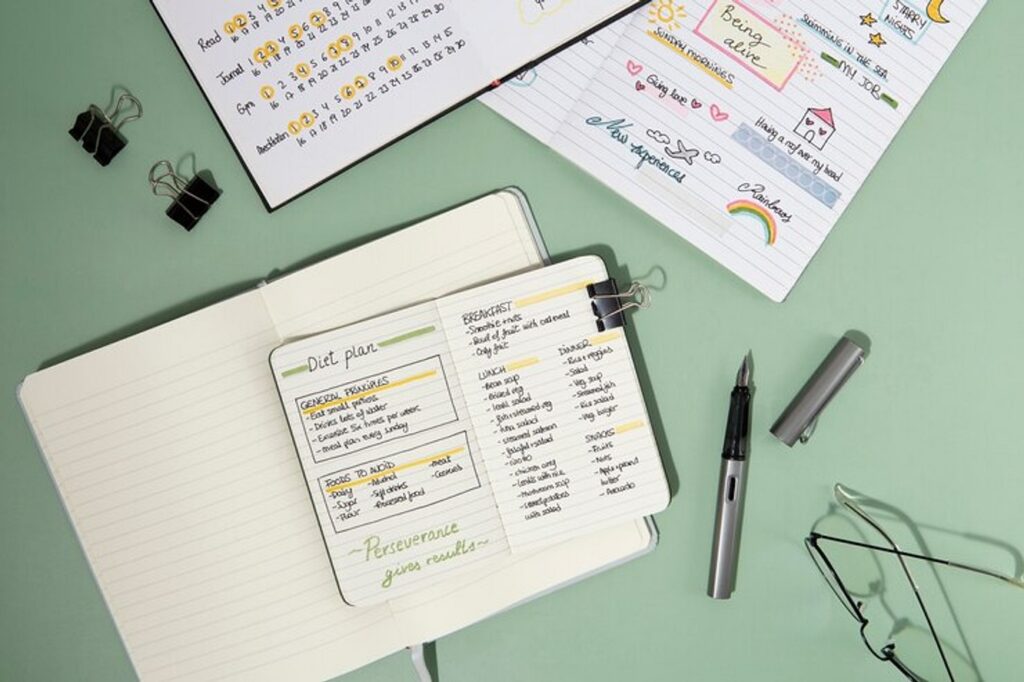 Read
1 2 3 4 5 6 7 8 9 10 11 12 13 14 15
16 17 18 19 20 21 22 23 24 25 26 27 28 29 30
Journal
1 2 3 4 5 6 7 8 9 10 11 12 13 14 15
16 17 18 19 20 21 22 23 24 25 26 27 28 29 30
Gym
1 2 3 4 5 6 7 8 9 10 11 12 13 14 15
16 17 18 19 20 21 22 23 24 25 26 27 28 29 30
Meditation
1 2 3 4 5 6 7 8 9 10 11 12 13 14 15
16 17 18 19 20 21 22 23 24 25 26 27 28 29 30
Being
alive
STARRY
NIGHTS
SUNDAY MORNINGS
SWIMMING IN THE SEA
MY JOB
Giving love
New experiences
Having a roof over my head
Rainbows
Diet plan
GENERAL PRINCIPLES
- Eat small portions
- Drinks lots of water
- Exercise six times per week
- Meal plan every sunday
FOODS TO AVOID
- Dairy
- Sugar
- Flour
- Alcohol
- Soft drinks
- Processed food
- Meat
- Cookies
~Perseverance
gives results~
BREAKFAST
- Smoothie + nuts
- Bowl of fruit with oatmeal
- Only fruit
LUNCH
- Bean soup
- Braised veg
- Lentil salad
- Fish + steamed veg
- Tuna salad
- Steamed salmon
- Falafel + salad
- Chicken curry
- Lentils with rice
- Mushroom soup
- Sweet potatoes
with salad
DINNER
- Rice + veggies
- Salad
- Veg soup
- Steamed fish
- Rice salad
- Veg burger
SNACKS
- Fruits
- Nuts
- Apple + peanut
butter
- Avocado